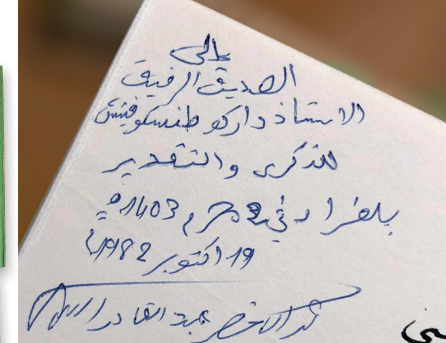 إلى
الصديق الرفيق
الاستاذ داركو طنسكوفيتش
للذكرى والتقدير
بلغراد في 2 محرم 1403 هـ
19 اكتوبر 1982م
الاخضر عبد القادر